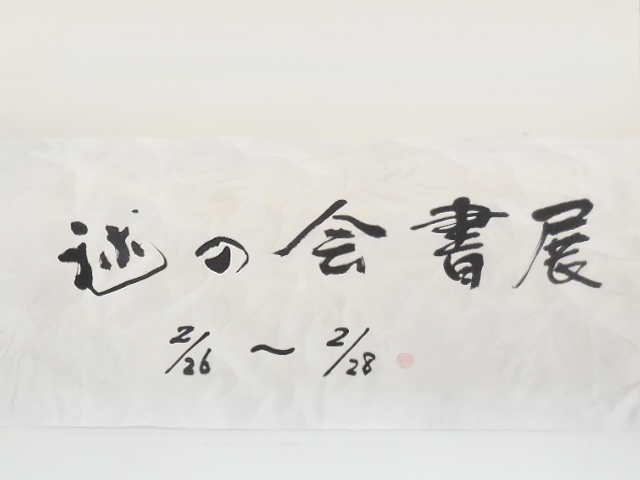 述の会書展
2/26 〜 2/28